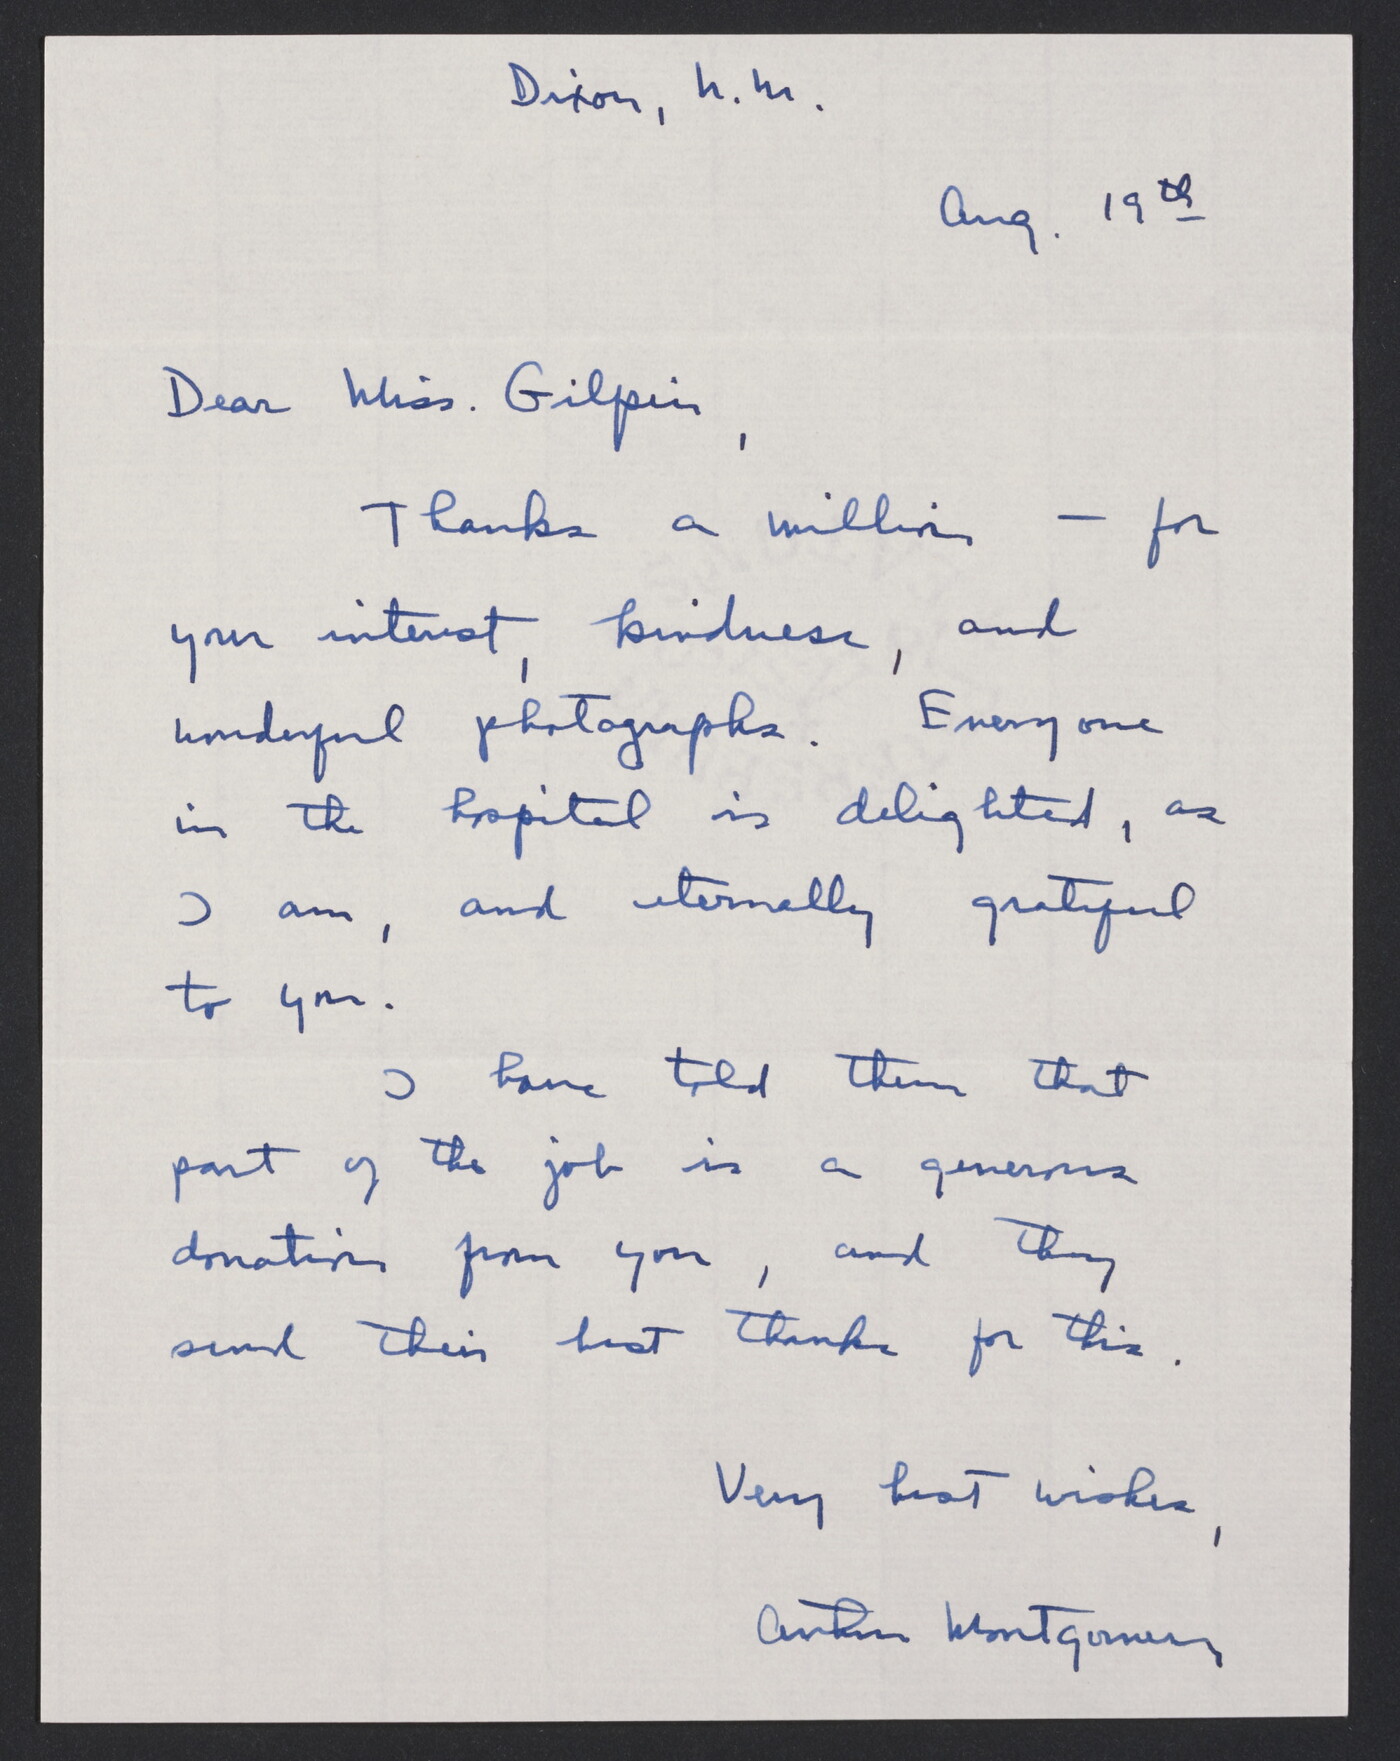 Dixon, N.M.
Aug. 19th
Dear Miss. Gilpin,
Thanks a million — for
your interest, kindness, and
wonderful photographs. Everyone
in the hospital is delighted, as
I am, and eternally grateful
to you.
I have told them that
part of the job is a generous
donation from you, and they
send their best thanks for this.
Very best wishes,
Arthur Montgomery